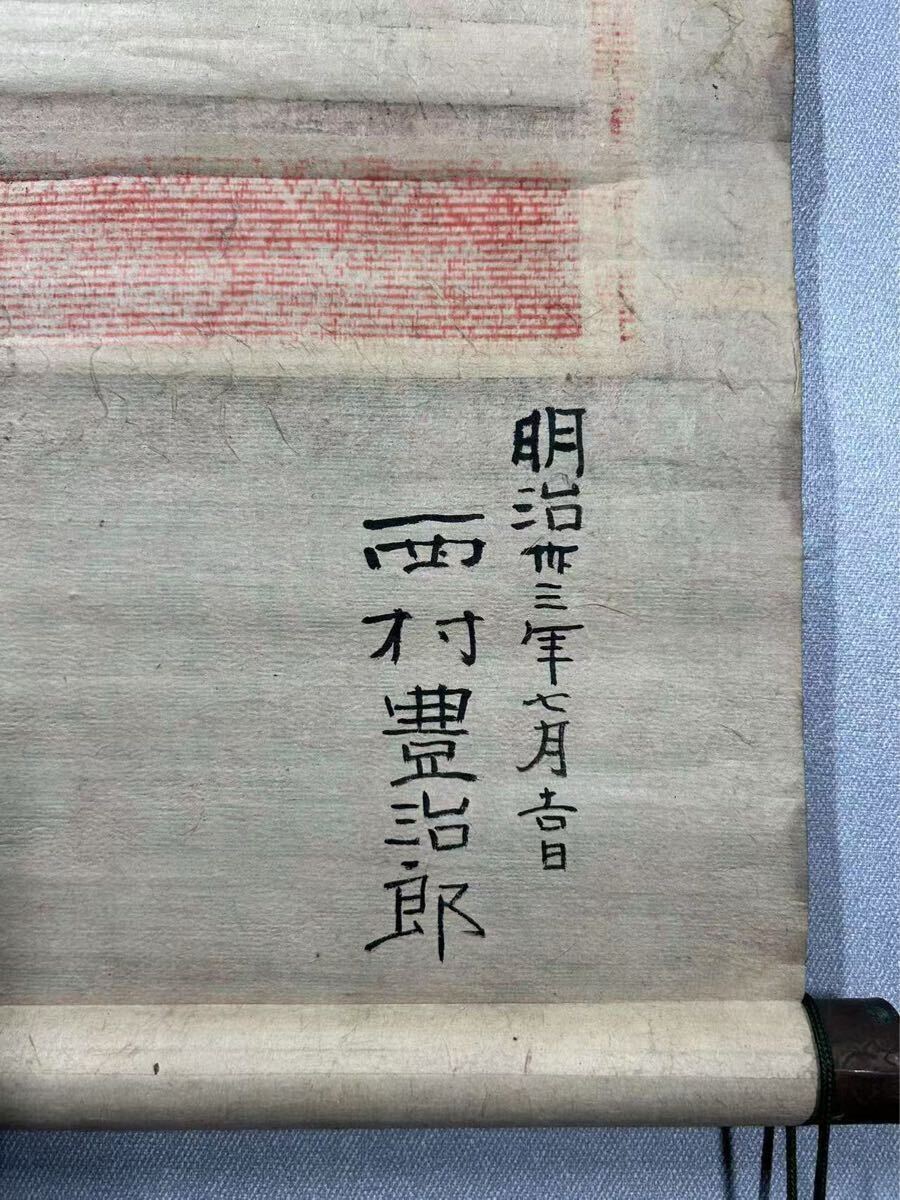 明治卅三年七月吉日
西村豊治郎